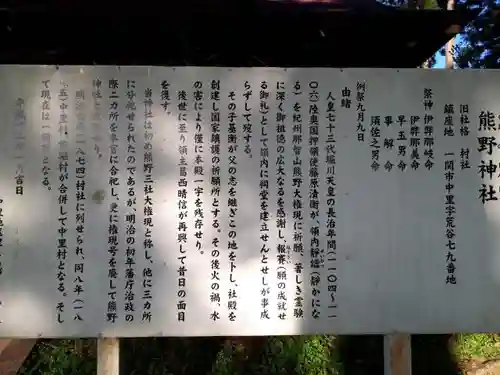 熊野神社
旧社格 村社
鎮座地 一関市中里字荒谷七九番地
祭神 伊弉那岐命
伊弉那美命
早玉男命
事解命
須佐之男命
例祭 九月九日
由緒
人皇七十三代堀川天皇の長治年間（一一〇四〜一一
〇六）陸奥国押領使藤原清衡が、領内静謐（静かにな
る）を紀州那智山熊野大権現に祈願、著しき霊験
に深く御祖徳の広大なるを感謝し、報賽（願の成就せ
る御礼）として領内に祠堂を建立せんとせしが事成
らずして歿する。
その子基衡が父の志を継ぎこの地を卜し、社殿を
創建し国家鎮護の祈願所とする。その後火の禍、水
の害により僅に本殿一宇を残存せり。
後世に至り領主葛西晴信が再興して昔日の面目
を復す。
当神社は初め熊野三社大権現と称し、他に三カ所
に分祀せられたのであるが、明治の初年藩庁治政の
際二カ所を本宮に合祀し、更に権現号を廃して熊野
神社と
（一八七四）村社に列せられ、同八年（一八
七五）中里村、
村が合併して中里村となる。そし
て現在は一関市となる。